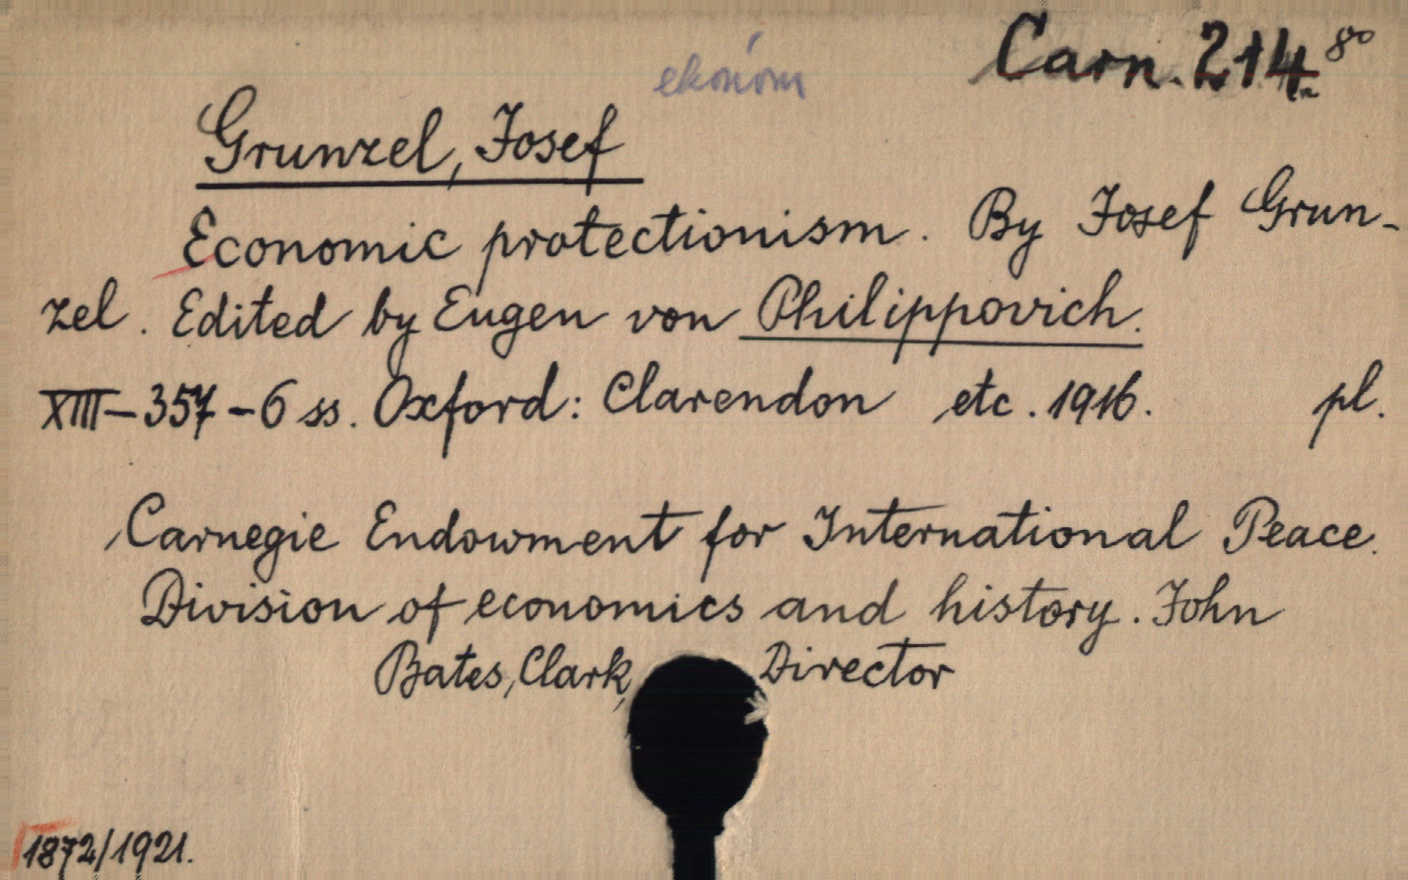 ekonóm
Carn. 214 8º
Grunzel, Josef
Economic protectionism. By Josef Grun-
zel. Edited by Eugen von Philippovich.
XIII-357-6 ss. Oxford: Clarendon etc. 1916. pl.
Carnegie Endowment for International Peace.
Division of economics and history. John
Bates, Clark, Director
1872/1921.